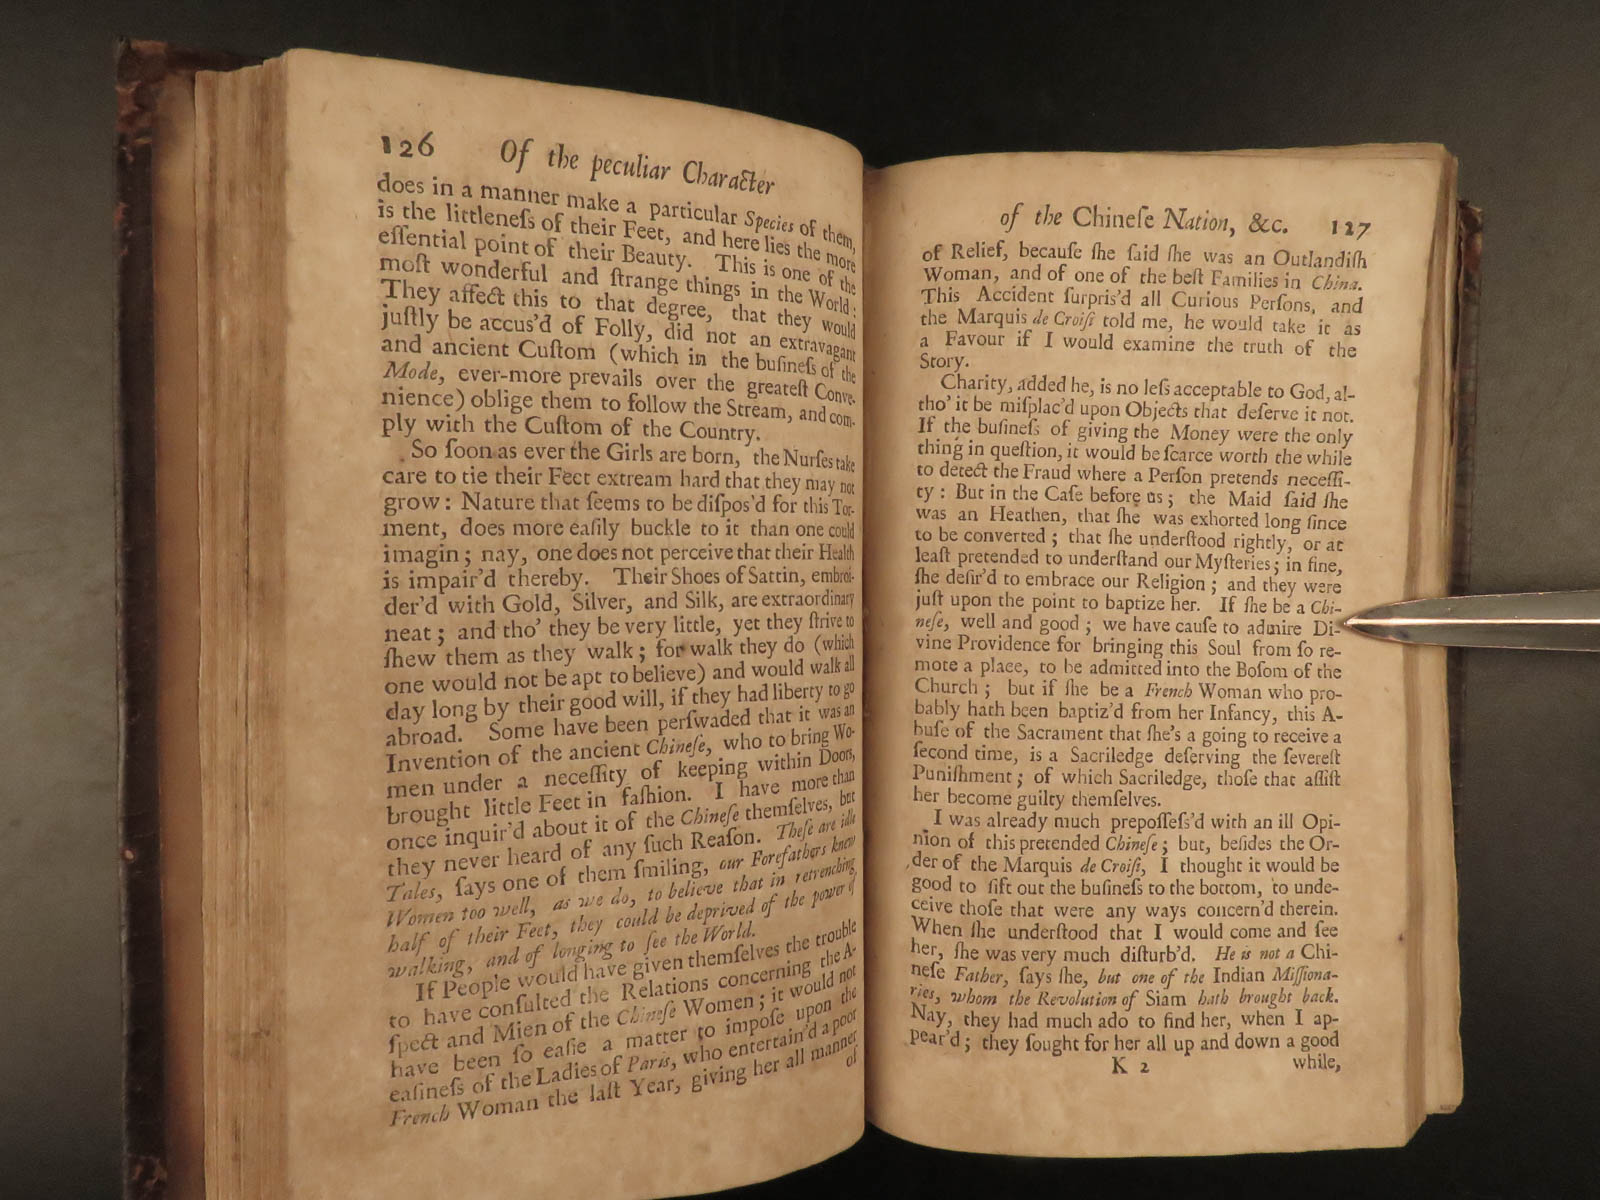 126 Of the peculiar Character
does in a manner make a particular Species of them,
is the littleneſs of their Feet, and here lies the more
eſſential point of their Beauty. This is one of the
moſt wonderful and ſtrange things in the World:
They affect this to that degree, that they would
juſtly be accus'd of Folly, did not an extravagant
and ancient Cuſtom (which in the buſineſs of the
Mode, ever-more prevails over the greateſt Conve-
nience) oblige them to follow the Stream, and com-
ply with the Cuſtom of the Country.
So ſoon as ever the Girls are born, the Nurſes take
care to tie their Feet extream hard that they may not
grow: Nature that ſeems to be diſpos'd for this Tor-
ment, does more eaſily buckle to it than one could
imagin; nay, one does not perceive that their Health
is impair'd thereby. Their Shoes of Sattin, embroi-
der'd with Gold, Silver, and Silk, are extraordinary
neat; and tho' they be very little, yet they ſtrive to
ſhew them as they walk; for walk they do (which
one would not be apt to believe) and would walk all
day long by their good will, if they had liberty to go
abroad. Some have been perſwaded that it was an
Invention of the ancient Chineſe, who to bring Wo-
men under a neceſſity of keeping within Doors,
brought little Feet in faſhion. I have more than
once inquir'd about it of the Chineſe themſelves, but
they never heard of any ſuch Reaſon. Theſe are idle
Tales, ſays one of them ſmiling, our Forefathers knew
Women too well, as we do, to believe that in retrenching
half of their Feet, they could be deprived of the power of
walking, and of longing to ſee the World.
If People would have given themſelves the trouble
to have conſulted the Relations concerning the A-
ſpect and Mien of the Chineſe Women; it would not
have been ſo eaſie a matter to impoſe upon the
eaſineſs of the Ladies of Paris, who entertain'd a poor
French Woman the laſt Year, giving her all manner
of
of the Chineſe Nation, &c. 127
of Relief, becauſe ſhe ſaid ſhe was an Outlandiſh
Woman, and of one of the beſt Families in China.
This Accident ſurpris'd all Curious Perſons, and
the Marquis de Croiſi told me, he would take it as
a Favour if I would examine the truth of the
Story.
Charity, added he, is no leſs acceptable to God, al-
tho' it be miſplac'd upon Objects that deſerve it not.
If the buſineſs of giving the Money were the only
thing in queſtion, it would be ſcarce worth the while
to detect the Fraud where a Perſon pretends neceſſi-
ty: But in the Caſe before us; the Maid ſaid ſhe
was an Heathen, that ſhe was exhorted long ſince
to be converted; that ſhe underſtood rightly, or at
leaſt pretended to underſtand our Myſteries; in fine,
ſhe deſir'd to embrace our Religion; and they were
juſt upon the point to baptize her. If ſhe be a Chi-
neſe, well and good; we have cauſe to admire Di-
vine Providence for bringing this Soul from ſo re-
mote a place, to be admitted into the Boſom of the
Church; but if ſhe be a French Woman who pro-
bably hath been baptiz'd from her Infancy, this A-
buſe of the Sacrament that ſhe's a going to receive a
ſecond time, is a Sacriledge deſerving the ſevereſt
Puniſhment; of which Sacriledge, thoſe that aſſiſt
her become guilty themſelves.
I was already much prepoſſeſs'd with an ill Opi-
nion of this pretended Chineſe; but, beſides the Or-
der of the Marquis de Croiſi, I thought it would be
good to ſift out the buſineſs to the bottom, to unde-
ceive thoſe that were any ways concern'd therein.
When ſhe underſtood that I would come and ſee
her, ſhe was very much diſturb'd. He is not a Chi-
neſe Father, ſays ſhe, but one of the Indian Miſſiona-
ries, whom the Revolution of Siam hath brought back.
Nay, they had much ado to find her, when I ap-
pear'd; they ſought for her all up and down a good
K 2 while,